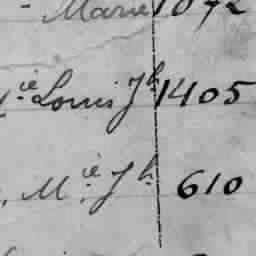 - Marie 1072
ie Louis Jh 1405
, Mie Jh 610